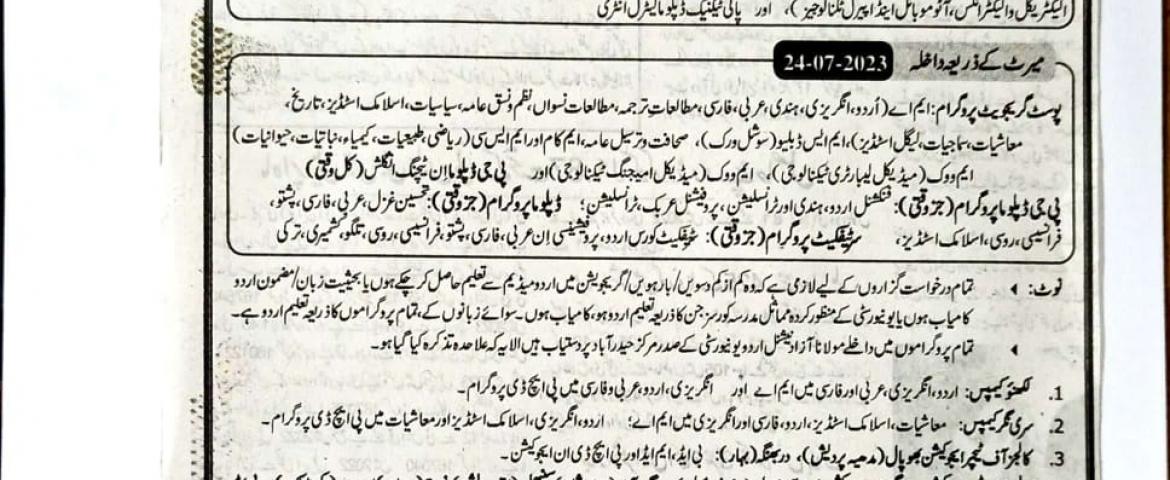 الیکٹریکل و الیکٹرانکس، آٹوموبائل اینڈ اپیرل ٹکنالوجیز)، اور پالی ٹیکنیک ڈپلوما لیٹرل انٹری
میرٹ کے ذریعہ داخلہ 24-07-2023
پوسٹ گریجویٹ پروگرام: ایم اے (اُردو، انگریزی، ہندی، عربی، فارسی، مطالعاتِ ترجمہ، مطالعات نسواں، نظم و نسق عامہ، سیاسیات، اسلامک اسٹڈیز، تاریخ،
معاشیات، سماجیات، لیگل اسٹڈیز)، ایم ایس ڈبلیو (سوشل ورک)، صحافت و ترسیل عامہ، ایم کام اور ایم ایس سی (ریاضی، طبیعیات، کیمیاء، نباتیات، حیوانیات)
ایم ووک (میڈیکل لیبارٹری ٹیکنالوجی)، ایم ووک (میڈیکل امیجنگ ٹیکنالوجی) اور پی جی ڈپلوما اِن ٹیچنگ انگلش (کل وقتی)
پی جی ڈپلوما پروگرام (جزوقتی): فنکشنل اردو، ہندی اور ٹرانسلیشن، پروفیشنل عربک، ٹرانسلیشن؛ ڈپلوما پروگرام (جزوقتی): تحسین غزل، عربی، فارسی، پشتو،
فرانسیسی، روسی، اسلامک اسٹڈیز، سرٹیفکیٹ پروگرام (جزوقتی): سرٹیفکیٹ کورس اردو، پروفیشنسی اِن عربی، فارسی، پشتو، فرانسیسی، روسی، تلگو، کشمیری، ترکی
نوٹ: تمام درخواست گزاروں کے لیے لازمی ہے کہ وہ کم از کم دسویں/بارہویں/گریجویشن میں اردو میڈیم سے تعلیم حاصل کر چکے ہوں یا بحیثیت زبان/مضمون اردو
کامیاب ہوں یا یونیورسٹی کے منظور کردہ مماثل مدرسہ کورسز جن کا ذریعہ تعلیم اردو ہو، کامیاب ہوں۔ سوائے زبانوں کے، تمام پروگراموں کا ذریعہ تعلیم اردو ہے۔
تمام پروگراموں میں داخلے مولانا آزاد نیشنل اردو یونیورسٹی کے صدر مرکز حیدرآباد پر دستیاب ہیں الا یہ کہ علاحدہ تذکرہ کیا گیا ہو۔
1. لکھنؤ کیمپس: اردو، انگریزی، عربی اور فارسی میں ایم اے اور انگریزی، اردو، عربی و فارسی میں پی ایچ ڈی پروگرام۔
2. سری نگر کیمپس: معاشیات، اسلامک اسٹڈیز، اردو، فارسی اور انگریزی میں ایم اے؛ اردو، انگریزی، اسلامک اسٹڈیز اور معاشیات میں پی ایچ ڈی پروگرام۔
3. کالجز آف ٹیچر ایجوکیشن بھوپال (مدھیہ پردیش)، دربھنگہ (بہار): بی ایڈ، ایم ایڈ اور پی ایچ ڈی ان ایجوکیشن۔